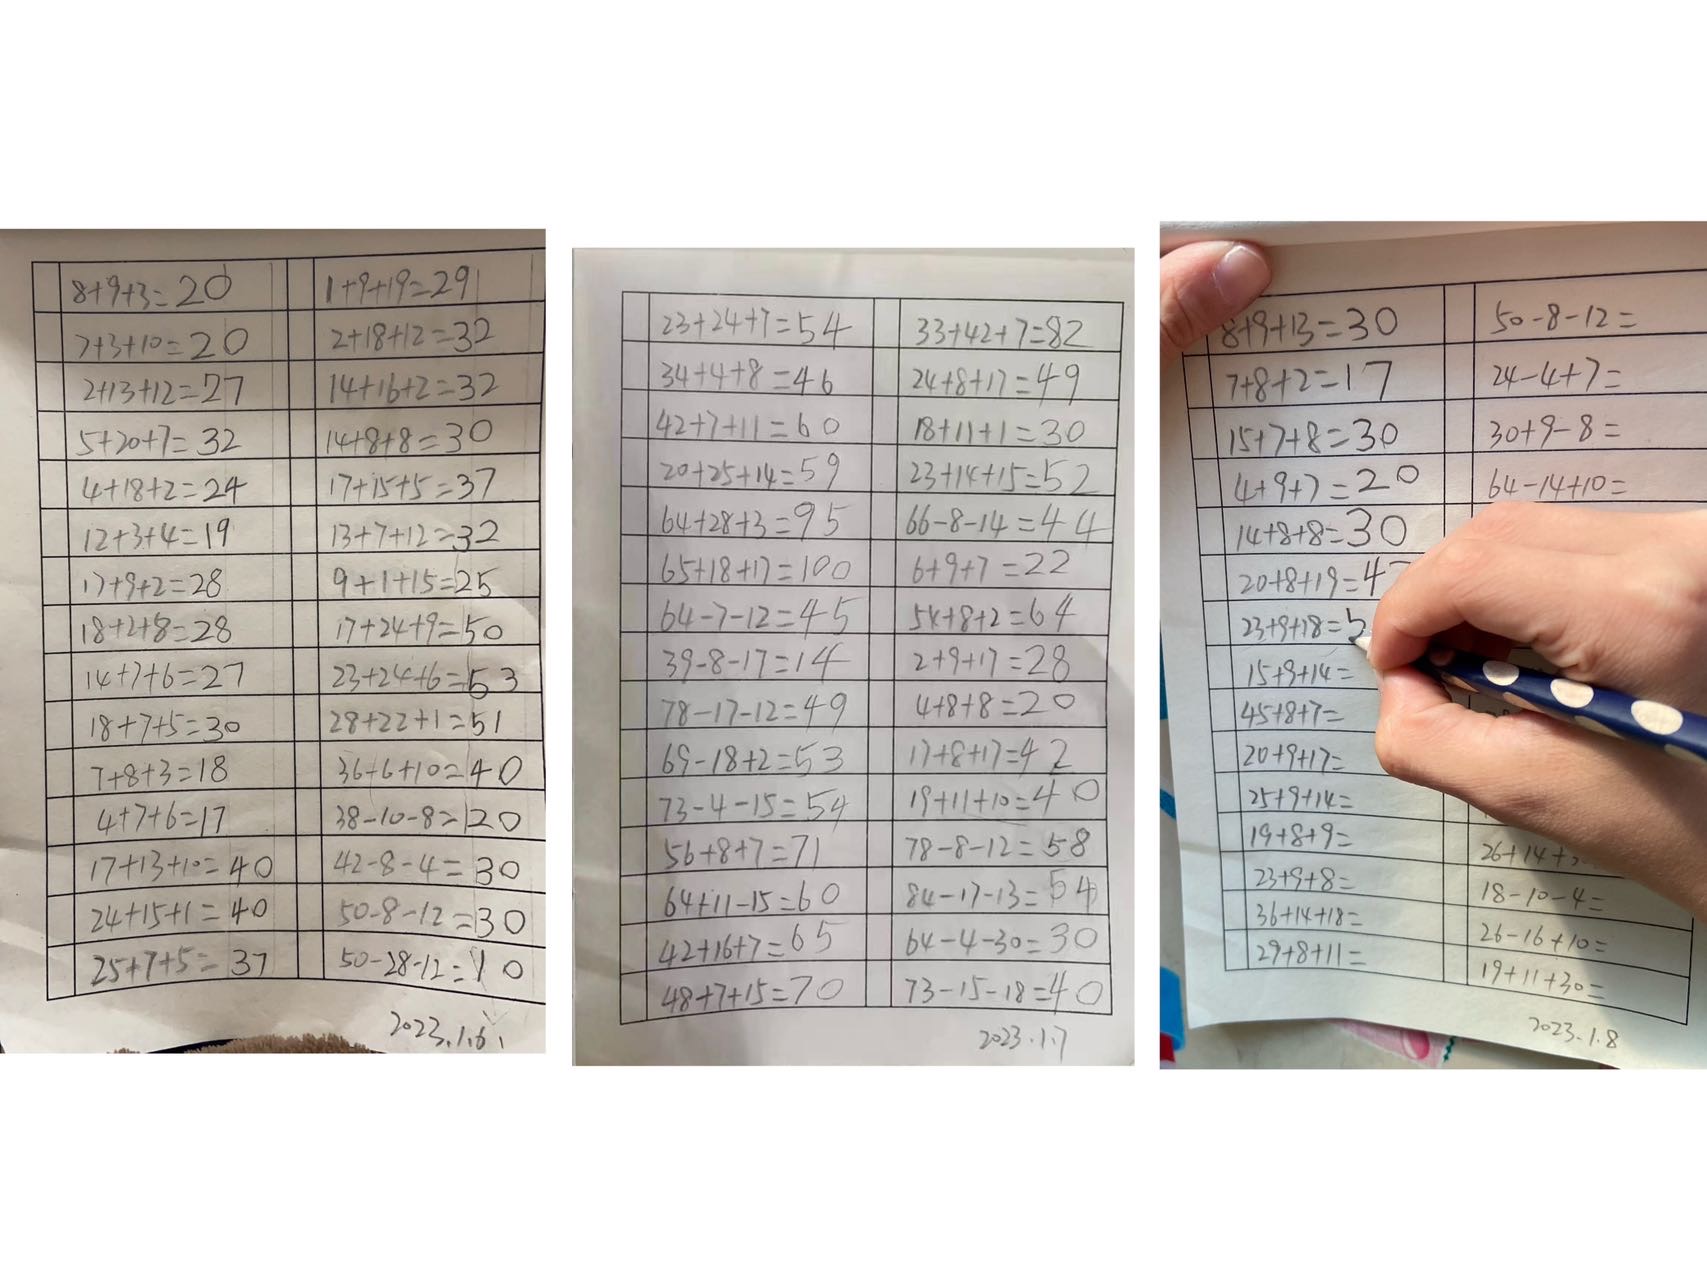 8+9+3=20
7+3+10=20
2+13+12=27
5+20+7=32
4+18+2=24
12+3+4=19
17+9+2=28
18+2+8=28
14+7+6=27
18+7+5=30
7+8+3=18
4+7+6=17
17+13+10=40
24+15+1=40
25+7+5=37
1+9+19=29
2+18+12=32
14+16+2=32
14+8+8=30
17+15+5=37
13+7+12=32
9+1+15=25
17+24+9=50
23+24+6=53
28+22+1=51
36-6+10=40
38-10-8=20
42-8-4=30
50-8-12=30
50-28-12=10
2023.1.6
23+24+7=54
34+4+8=46
42+7+11=60
20+25+14=59
64+28+3=95
65+18+17=100
64-7-12=45
39-8-17=14
78-17-12=49
69-18+2=53
73-4-15=54
56+8+7=71
64+11-15=60
42+16+7=65
48+7+15=70
33+42+7=82
24+8+17=49
18+11+1=30
23+14+15=52
66-8-14=44
6+9+7=22
54+8+2=64
2+9+17=28
4+8+8=20
17+8+17=42
19+11+10=40
78-8-12=58
84-17-13=54
64-4-30=30
73-15-18=40
2023.1.7
8+9+13=30
7+8+2=17
15+7+8=30
4+9+7=20
14+8+8=30
20+8+19=47
23+9+18=5
15+9+14=
45+8+7=
20+9+17=
25+9+14=
19+8+9=
23+9+8=
36+14+18=
29+8+11=
50-8-12=
24-4+7=
30+9-8=
64-14+10=
26+14+
18-10-4=
26-16+10=
19+11+30=
2023.1.8